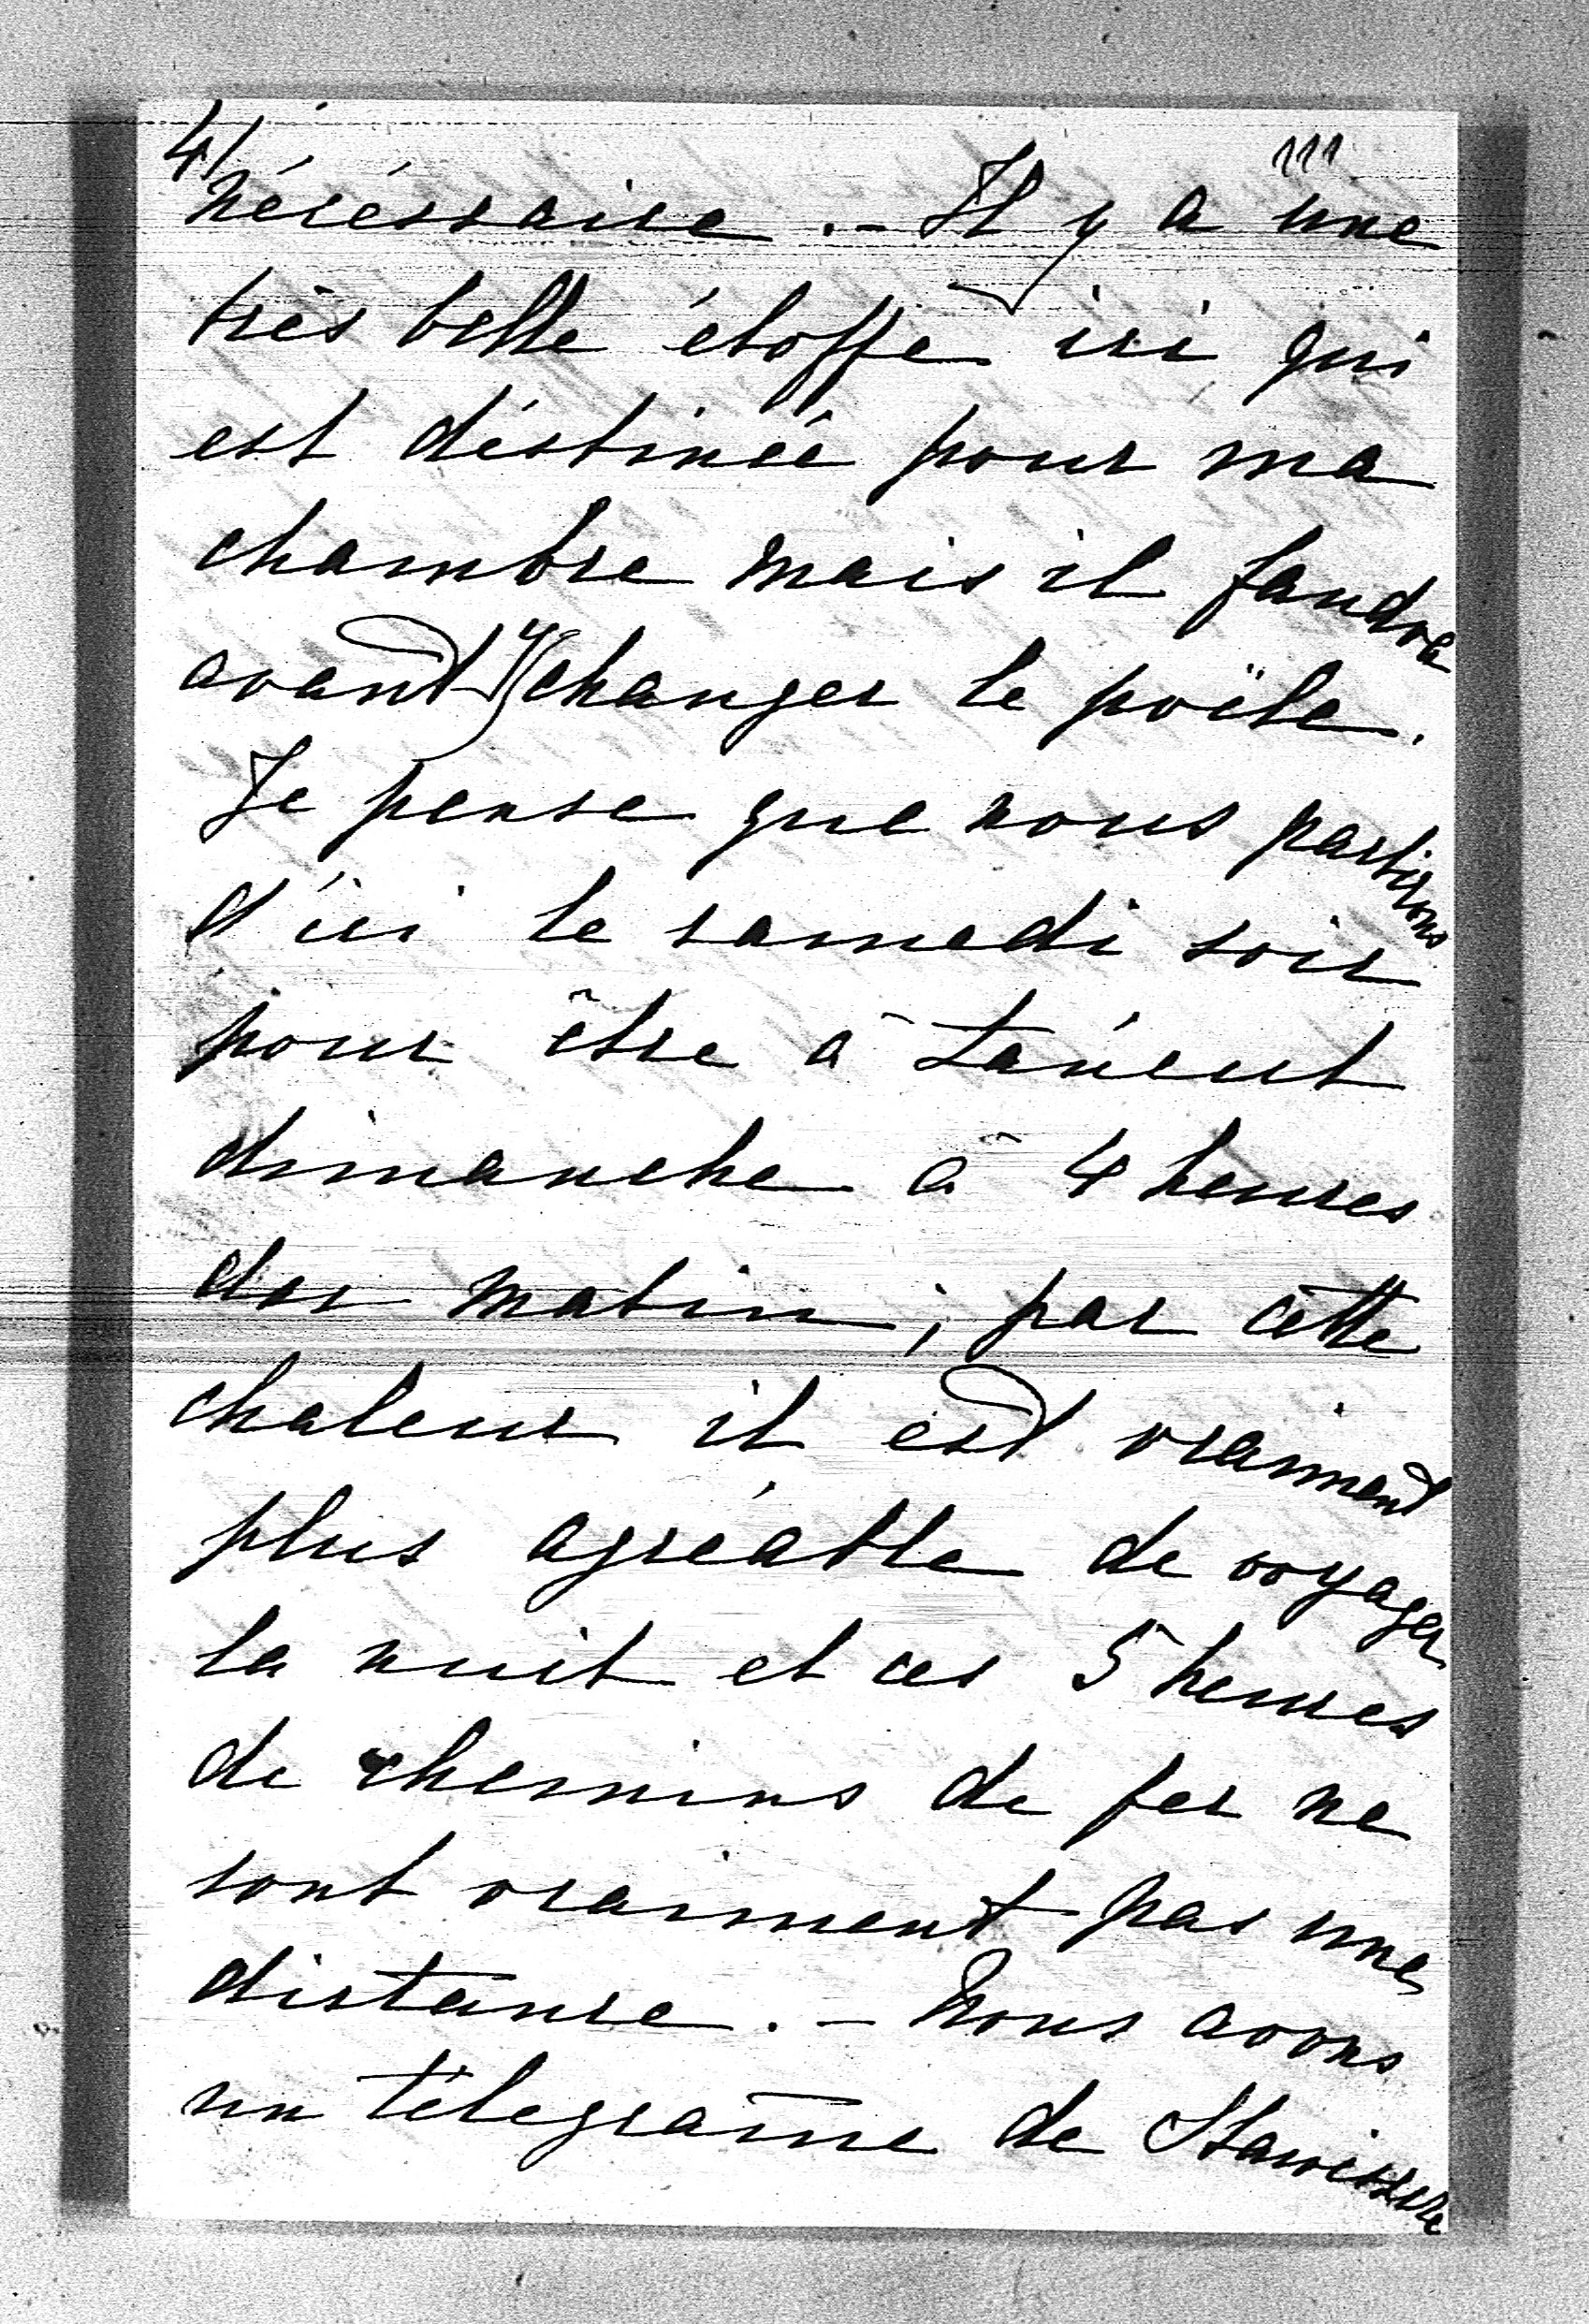 4/
111
nécéssaire. - Il y a une
très belle étoffe ici qui
est déstinée pour ma
chambre mais il faudra
avant y changer le poële.
Je pense que nous partirons
d'ici le samedi soir
pour être à Lancut
dimanche à 4 heures
du matin; par cette
chaleur il est vraiment
plus agréable de voyager
la nuit et ces 5 heures
de chemins de fer ne
sont vraiment pas une
distance. - Nous avons
un télegrame de